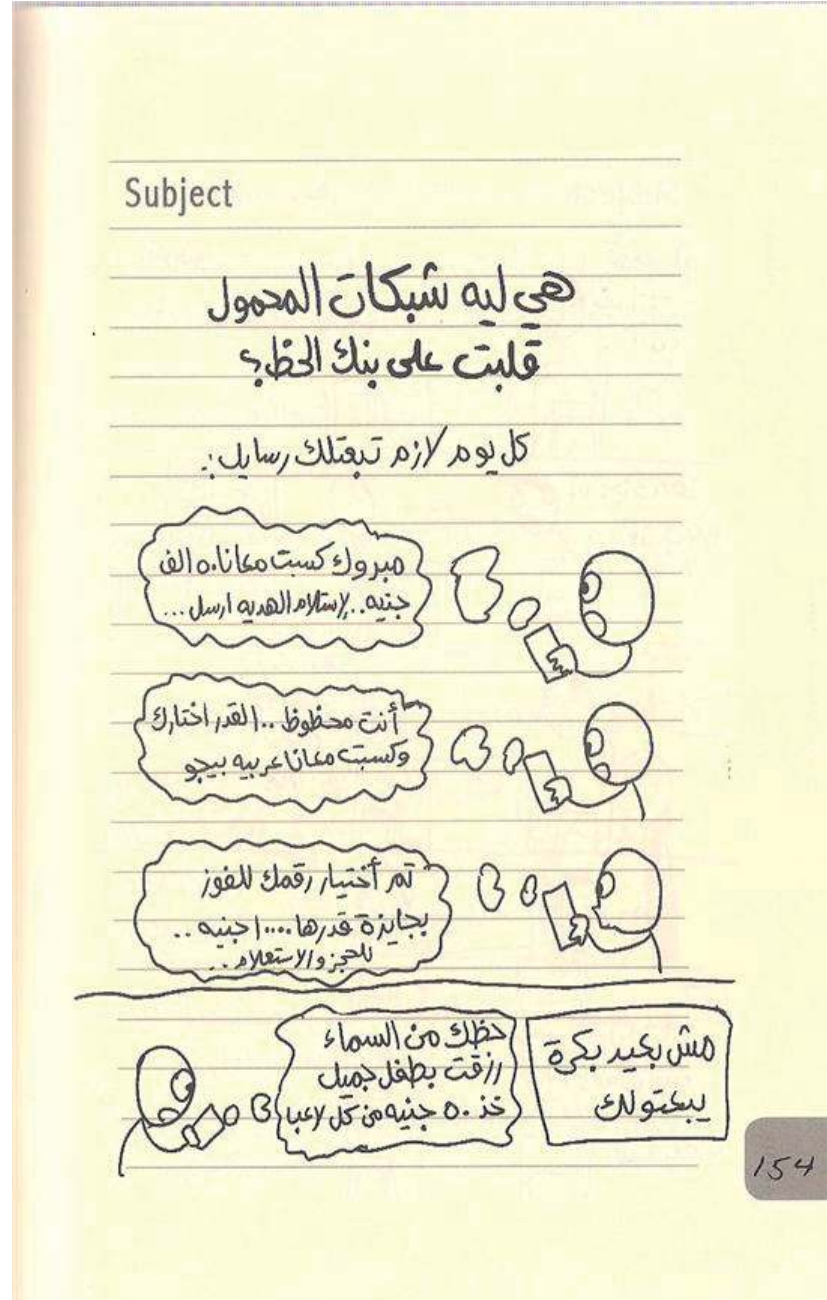 Subject
هي ليه شبكات المحمول
قلبت على بنك الحظ؟
كل يوم لازم تبعتلك رسايل:
مبروك كسبت معانا ٥٠ الف
جنيه.. لإستلام الهديه ارسل...
أنت محظوظ.. القدر اختارك
وكسبت معانا عربيه بيجو
تم أختيار رقمك للفوز
بجايزة قدرها ١٠٠٠٠ جنيه..
للحجز والاستعلام..
مش بعيد بكرة
يبعتولك
حظك من السماء
رزقت بطفل جميل
خذ ٥٠ جنيه من كل لاعب
154